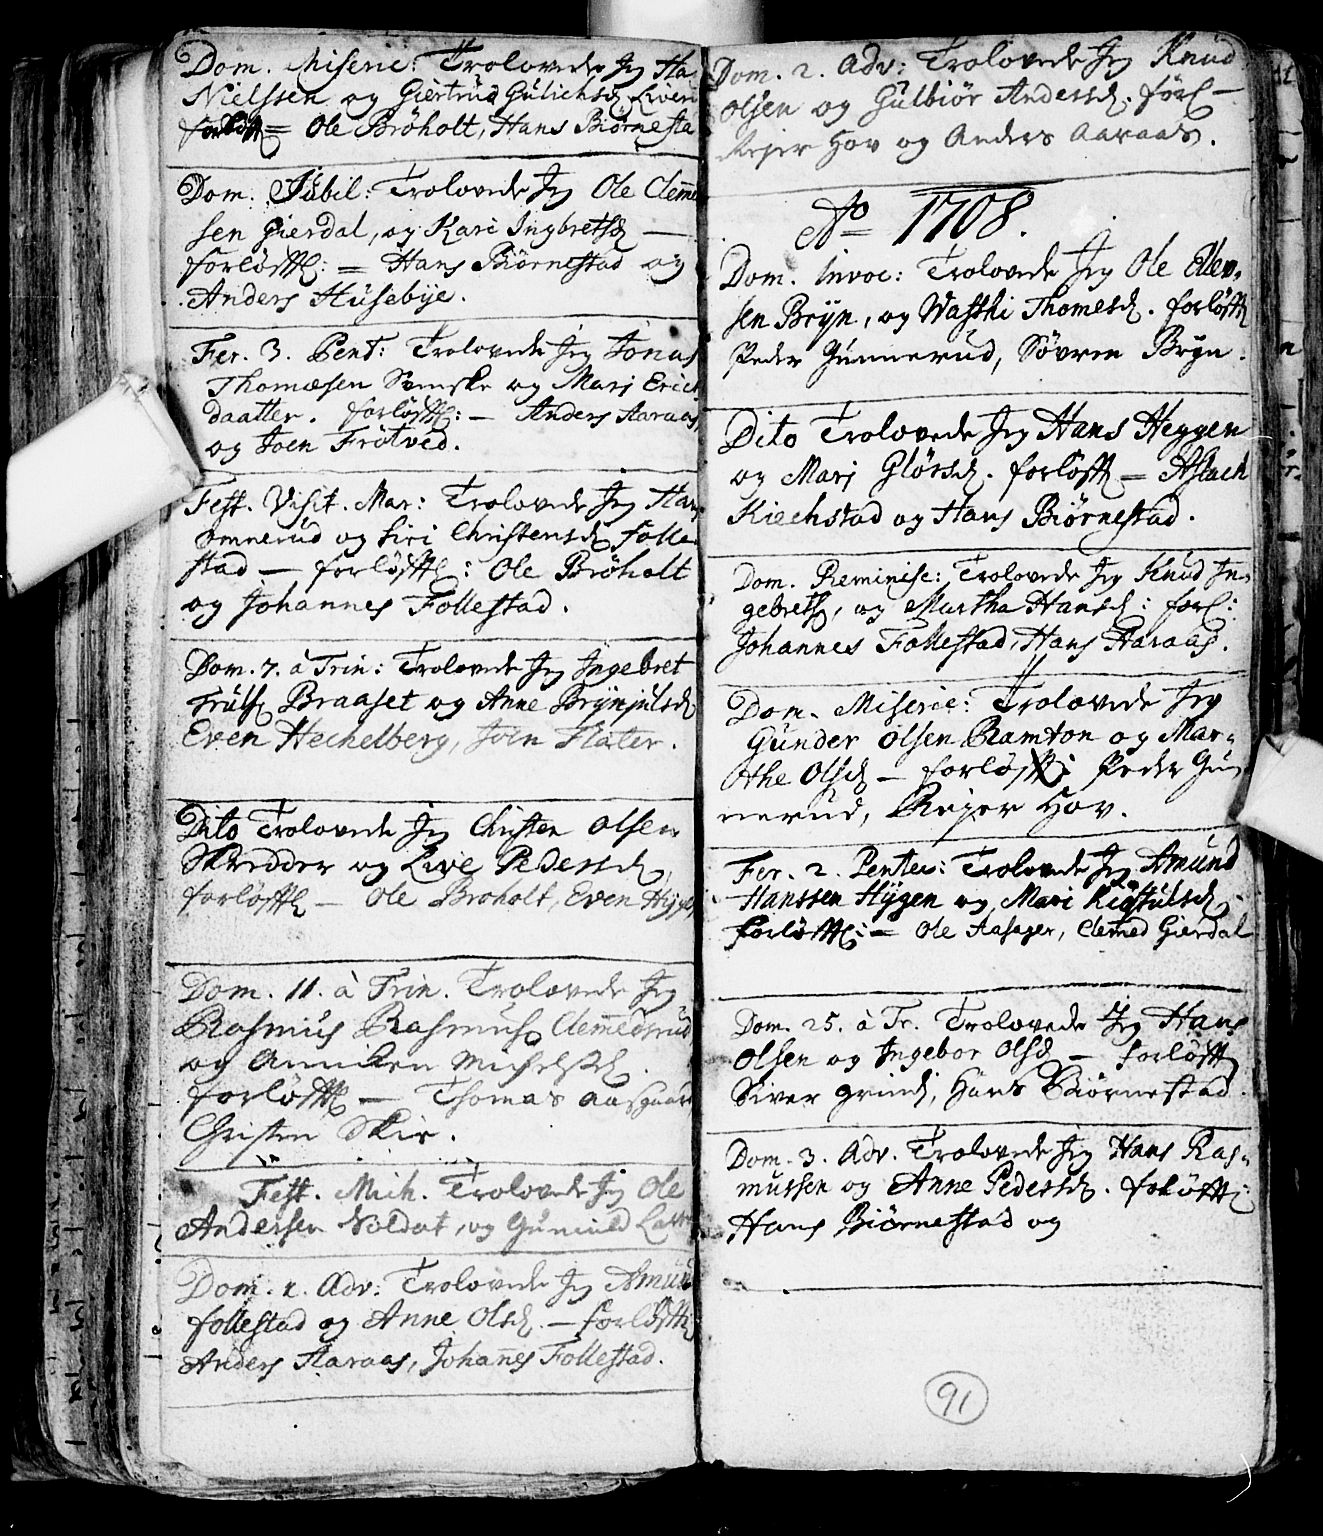 Dom. Miseric: Trolovede Jeg Ha
Nielssen og Giertrud Gulichsd
forløft = Ole Brøholt, Hans Biørnesta
Dom. Jubil: Trolovede Jeg Ole Clemme
sen Gierdal, og Kari Ingbretsd —
forløftt: = Hans Biørnestad og
Anders Husebye.
Fer. 3. Pent: Trolovede Jeg Jonas
Thomæsen Svenske og Mari Erich
daatter. forløftt: — Anders Aaraas,
og Joen Frøtved.
Fest. Visit. Mar: Trolovede Jeg Hans
Omnerud og Siri Christensd Folle-
stad — forløftt: Ole Brøholt
og Johannes Follestad.
Dom. 7. à Trin: Trolovede Jeg Ingebret
Truls Braaset og Anne Brynjulsd
Even Heckelberg, Joen Flater.
Dito Trolovede Jeg Christen Olsen
Skredder og Live Pedersd,
forløftt — Ole Brøholt, Even Hyge
Dom. 11. à Trin. Trolovede Jeg
Rasmus Rasmus Clemmedsrud
og Anniken Michelsd.
forløftt — Thomas Aasguar
Christen Skie.
Fest. Mich. Trolovede Jeg Ole
Andersen Soldat, og Gunnild
Dom. 1. Adv: Trolovede Jeg Amun
follestad og Anne Olsd. — forløftt
Anders Aaraas, Johannes Follestad.
Dom. 2. Adv: Trolovede Jeg Knud
Olsen og Gulbiør Andersd. førl —
Rejer Hov og Anders Aaraas.
Ao 1708.
Dom. Invoc: Trolovede Jeg Ole Ellev-
sen Bryn, og Thomesd. forløftt
Peder Gunnerud, Søvren Bryn.
Dito Trolovede Jeg Hans Heggen
og Mari Glørsd. forløftt — Aslach
Kiechstad og Hans Biørnestad.
Dom. Reminisc: Trolovede Jeg Knud In-
gebrets, og Martha Hansd: forl:
Johannes Follestad, Hans Haraas.
Dom. Miseric: Trolovede Jeg
Gunder Olsen Ramton og Mar-
the Olsd — forløft: Peder Gun-
nerud, Rejer Hov.
Fer. 2. Pentec: Trolovede Jeg Amund
Hanssen Hygen og Mari Kiøstulsd
forløftt: = Ole Aasager, Clemed Gierdal
Dom. 25. à Tr. Trolovede Jeg Hans
Olsen og Ingebor Olsd — forløftt
Siver grini, Hans Biørnestad.
Dom. 3. Adv. Trolovede Jeg Hans Ras-
mussen og Anne Pedersd. foløftt:
Hans Biørnestad og
91